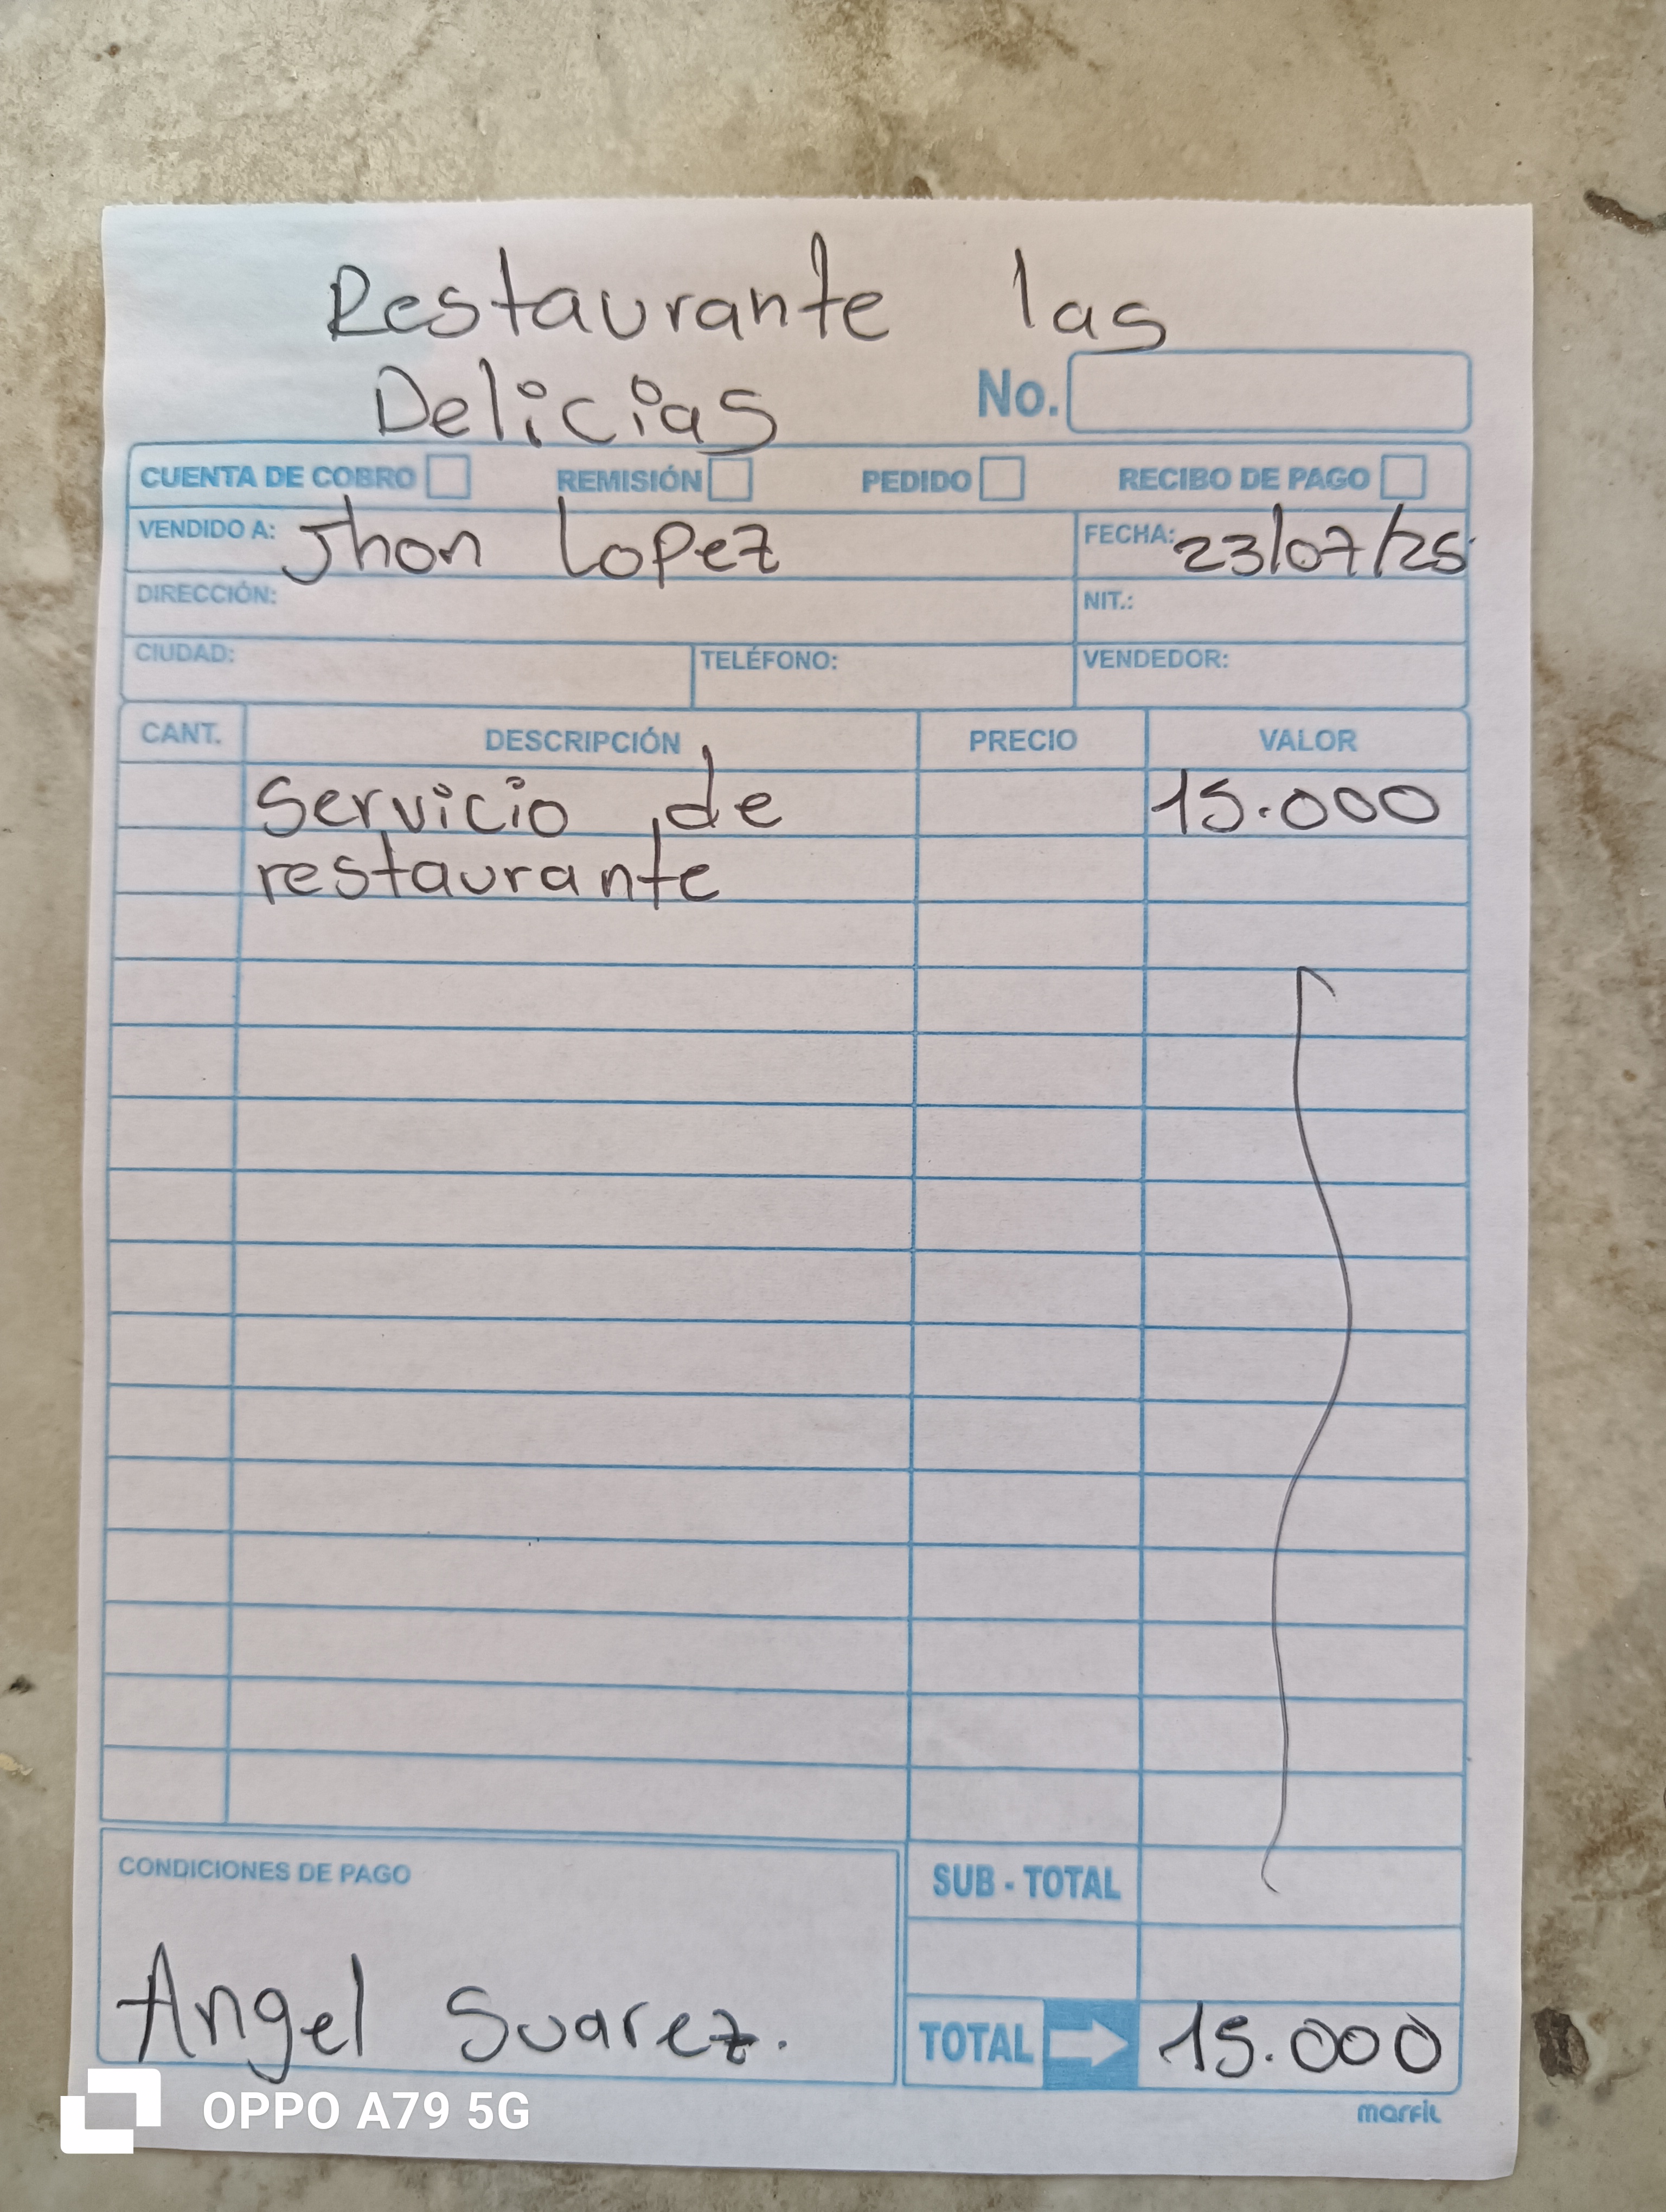 Restaurante las
Delicias
No.
CUENTA DE COBRO REMISIÓN PEDIDO RECIBO DE PAGO
VENDIDO A: Jhon Lopez FECHA: 23/07/25
DIRECCIÓN: NIT.:
CIUDAD: TELÉFONO: VENDEDOR:
CANT. DESCRIPCIÓN PRECIO VALOR
Servicio de 15.000
restaurante
CONDICIONES DE PAGO SUB - TOTAL
Angel Suarez. TOTAL 15.000
marfil
OPPO A79 5G